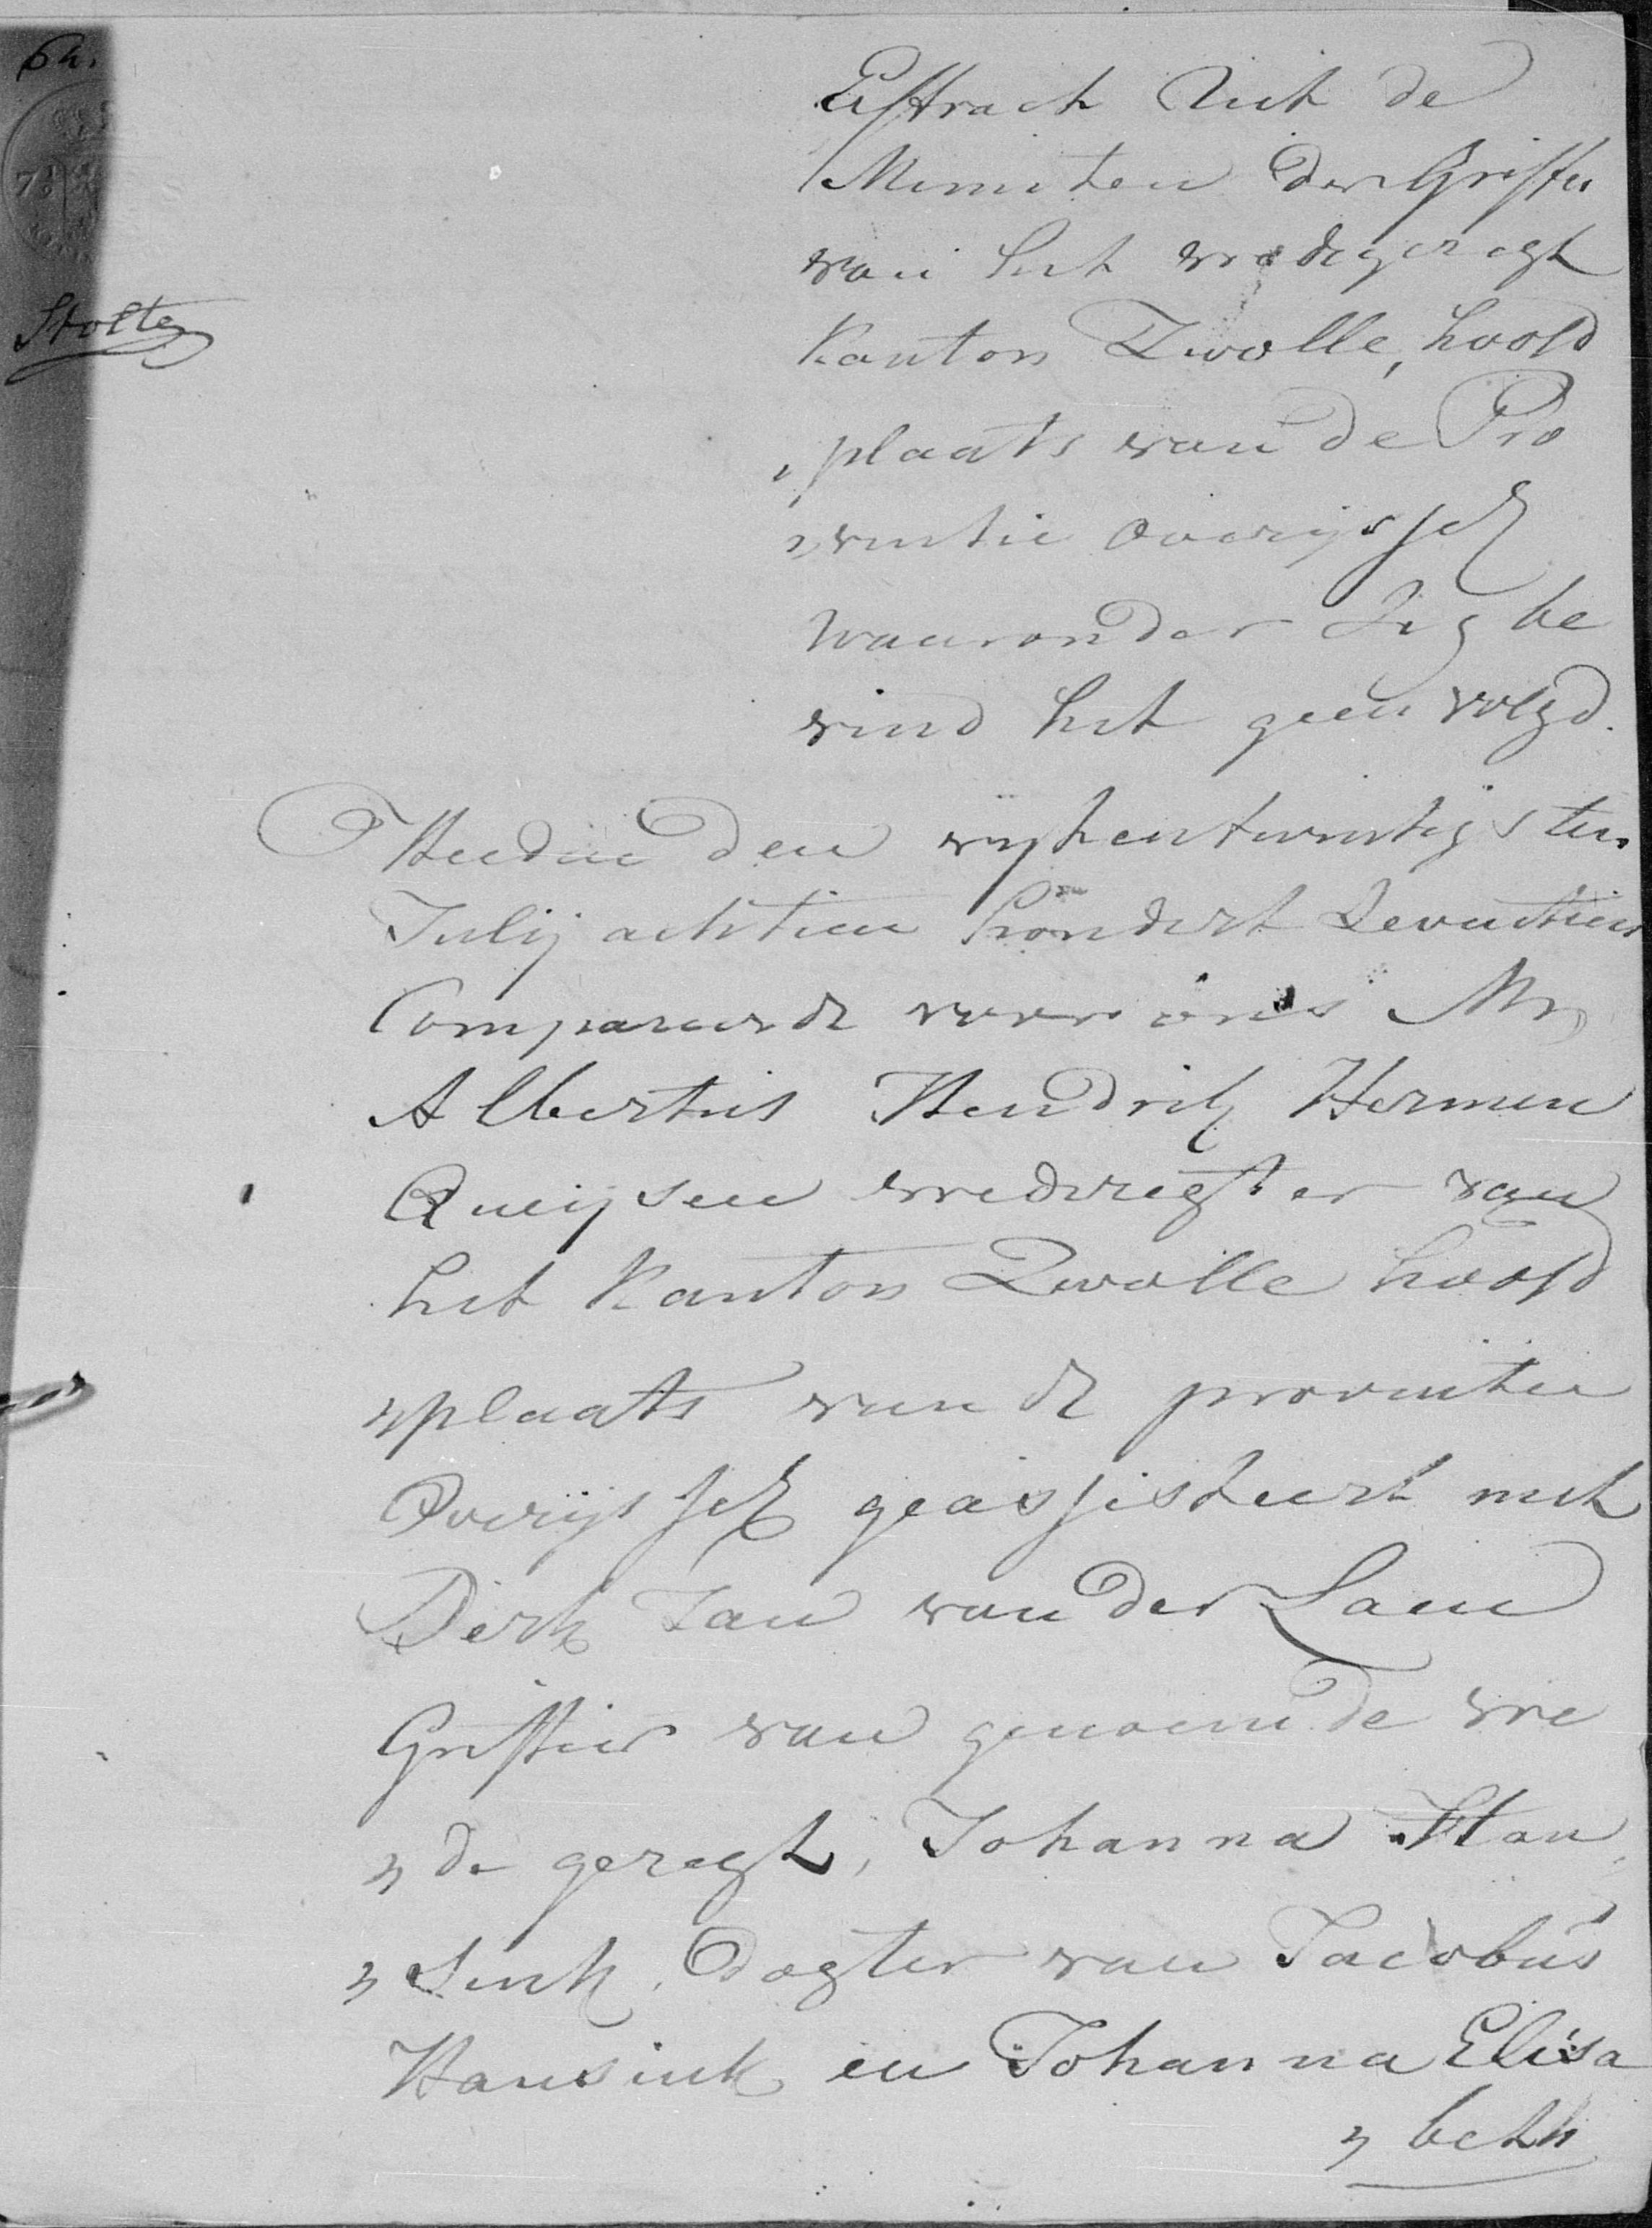 Extract Uit de
Minuten der Griffie
van het vredegeregt
Kanton Zwolle, hoofd
„plaats van de Pro
„vintie Overijssel
Waaronder Zig be
vind het geen volgd.
Heeden den vyfentwintigsten
Julij achtien hondert Zeventien
Compareerde voor ons Mr.
Albertus Hendrik Hermen
Queijsen vrederegter van
het Kanton Zwolle hoofd
„plaats van de provintie
Overijssel geassisteert met
Derk Jan van der Laen
Griffier van genoemde vre
„de geregt, Johanna Han
„sink, Dogter van Jacobus
Hansink en Johanna Elisa
„beth
Stolte